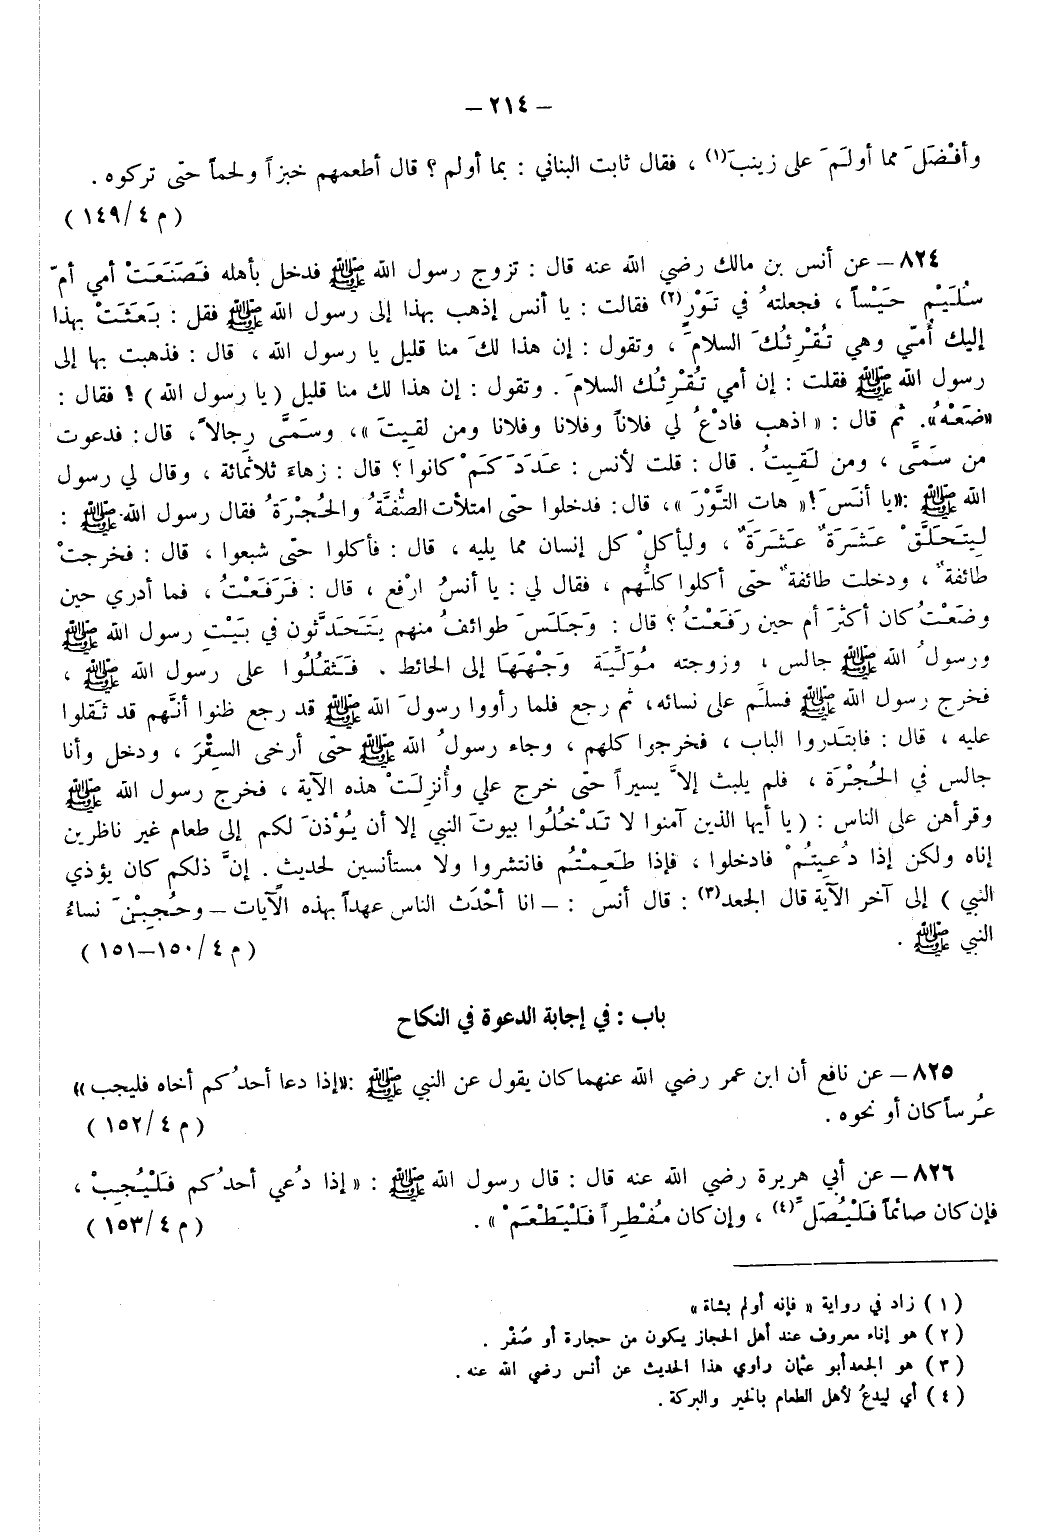 – ٢١٤ –
وأفْضَلَ مما أولَمَ على زينبَ(١) ، فقال ثابت البناني : بما أولم ؟ قال أطعمهم خبزاً ولحماً حتى تركوه .
( م ٤/١٤٩ )
٨٢٤ – عن أنس بن مالك رضي الله عنه قال : تزوج رسول الله ﷺ فدخل بأهله فَصَنَعَتْ أمي أمّ
سُلَيْم حَيْساً ، فجعلتهُ في تَوْرٍ(٢) فقالت : يا أنس إذهب بهذا إلى رسول الله ﷺ فقل : بَعَثَتْ بهذا
إليك أُمّي وهي تُقْرِئُكَ السلامَ ، وتقول : إن هذا لكَ منا قليل يا رسول الله ، قال : فذهبت بها إلى
رسول الله ﷺ فقلت : إن أمي تُقْرِئُك السلامَ . وتقول : إن هذا لك منا قليل ( يا رسول الله ) ! فقال :
«ضَعْهُ». ثم قال : « اذهب فادْعُ لي فلاناً وفلانا وفلانا ومن لقيتَ »، وسَمَّى رِجالاً، قال: فدعوت
من سَمَّى ، ومن لَقِيتُ . قال : قلت لأنس : عَدَدَ كَمْ كانوا؟ قال : زهاءَ ثلاثمائة ، وقال لي رسول
الله ﷺ :«يا أنَسَ !« هات التَّوْرَ »، قال: فدخلوا حتى امتلأت الصُّفَّةُ والحُجْرَةُ فقال رسول الله ﷺ :
لِيتَحَلَّقْ عَشَرَةٌ عَشَرَةٌ ، وليأكلْ كل إنسان مما يليه ، قال : فأكلوا حتى شبعوا ، قال : فخرجتْ
طائفةٌ ، ودخلت طائفةٌ حتى أكلوا كلُّهم ، فقال لي : يا أنسُ ارْفع ، قال : فَرَفَعْتُ ، فما أدري حين
وضَعْتُ كان أكثرَ أم حين رَفَعْتُ؟ قال : وَجَلَسَ طوائفُ منهم يتَحَدَّثون في بَيْتِ رسول الله ﷺ
ورسولُ الله ﷺ جالس ، وزوجته مُوَلِّيَة وَجْهَهَا إلى الحائط . فَثَقُلُوا على رسول الله ﷺ ،
فخرج رسول الله ﷺ فسلَّم على نسائه، ثم رجع فلما رأووا رسولَ الله ﷺ قد رجع ظنوا أنَّهم قد ثَقلوا
عليه ، قال : فابتَدروا الباب ، فخرجوا كلهم ، وجاء رسولُ الله ﷺ حتى أرخى السِتْرَ ، ودخل وأنا
جالس في الحُجْرَة ، فلم يلبث إلاَّ يسيراً حتى خرج علي وأُنزِلَتْ هذه الآية ، فخرج رسول الله ﷺ
وقرأهن على الناس : ( يا أيها الذين آمنوا لا تَدْخُلُوا بيوتَ النبي إلا أن يُؤذنَ لكم إلى طعام غير ناظرين
إناه ولكن إذا دُعِيتُمْ فادخلوا ، فإذا طَعِمْتُم فانتشروا ولا مستأنسين لحديث. إنَّ ذلكم كان يؤذي
النبي ) إلى آخر الآية قال الجعد(٣) : قال أنس : – انا أحْدَث الناس عهداً بهذه الآيات – وحُجِبْنَ نساءُ
النبي ﷺ .
( م ٤/١٥٠–١٥١ )
باب : في إجابة الدعوة في النكاح
٨٢٥ – عن نافع أن ابن عمر رضي الله عنهما كان يقول عن النبي ﷺ :«إذا دعا أحدُكم أخاه فليجب »
عُرساً كان أو نحوه .
( م ٤/١٥٢ )
٨٢٦ – عن أبي هريرة رضي الله عنه قال : قال رسول الله ﷺ : « إذا دُعي أحدُكم فَلْيُجِبْ ،
فإن كان صائماً فَلْيُصَلِّ(٤) ، وإن كان مُفْطِراً فَلْيَطْعَمْ » .
( م ٤/١٥٣ )
( ١ ) زاد في رواية « فإنه أولم بشاة »
( ٢ ) هو إناء معروف عند أهل الحجاز يكون من حجارة أو صُفْر .
( ٣ ) هو الجعد أبو عثمان راوي هذا الحديث عن أنس رضي الله عنه .
( ٤ ) أي ليدعُ لأهل الطعام بالخير والبركة .